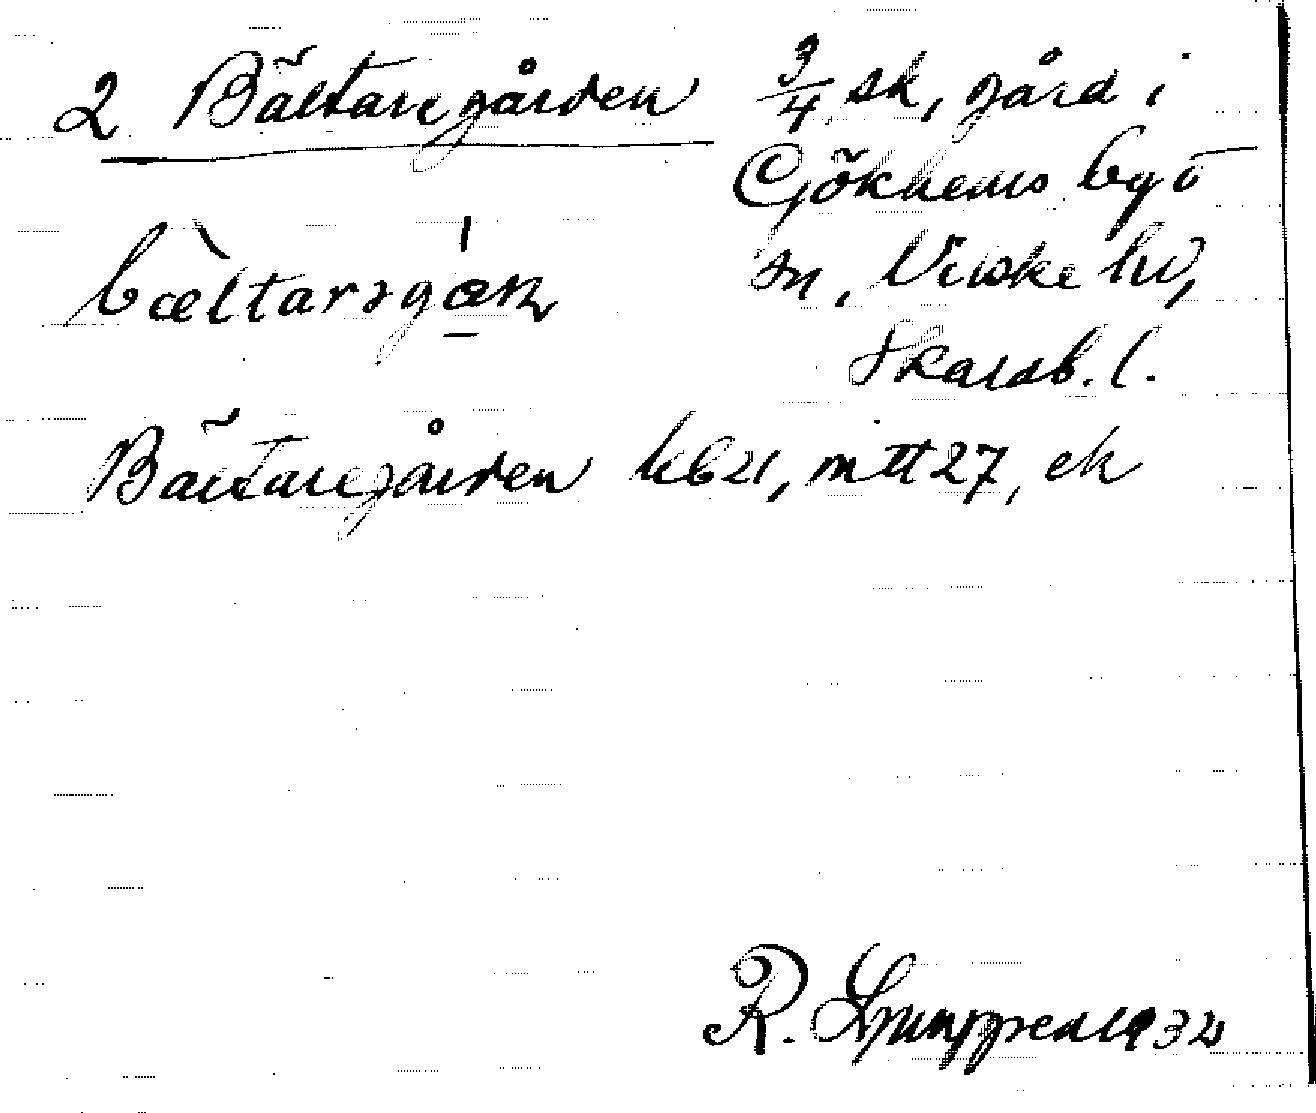 2 Bältaregården 3/4 sk, gård i
Gökhems by o
sn, Vilske hd,
Skarab. l.
bæltarəgɑn
Bältaregården kb 21, mtt 27, ek
R. Ljunggren 1932